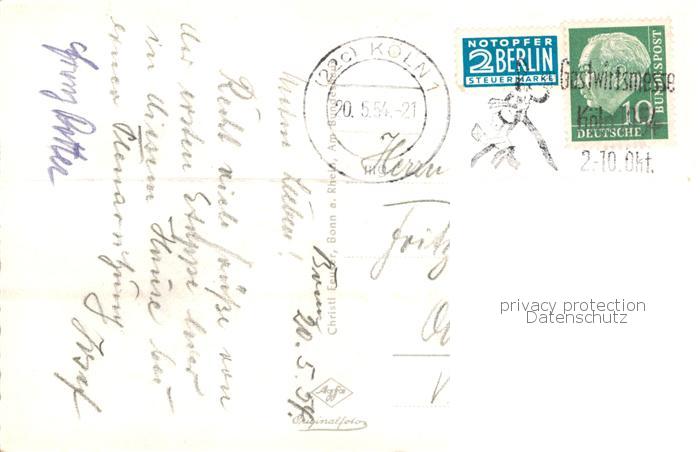 (22c) KÖLN 1
20.5.54.-21
NOTOPFER
2 BERLIN
STEUERMARKE
DEUTSCHE BUNDESPOST
10
Gastwirtsmesse
Köln
2.-10. Okt.
Herrn
Fritz
privacy protection
Datenschutz
Bonn
20.5.54.
Meine Lieben!
Recht viele Grüße von
der ersten Etappe
in diesem Hause
einer Plenarsitzung
Josef
Christl Bonn a. Rhein, Am
Agfa
Originalfoto